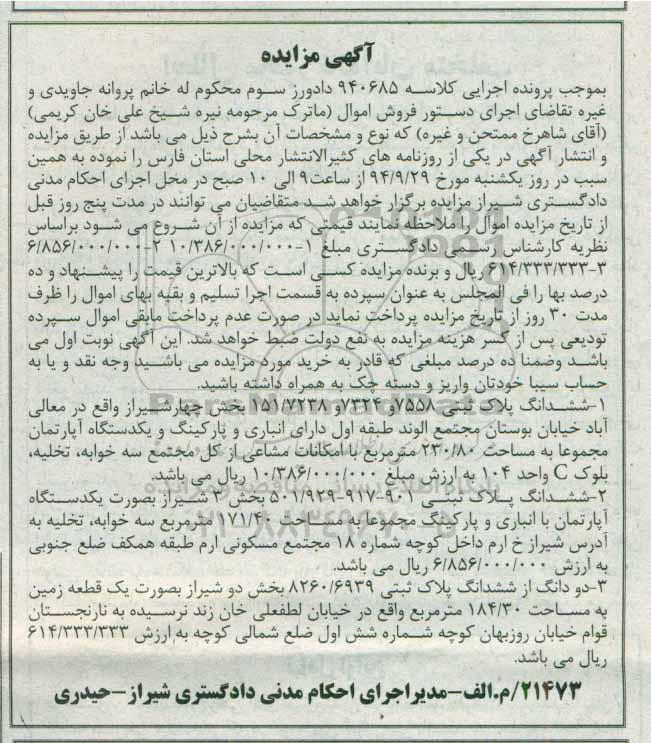 آگهی مزایده
بموجب پرونده اجرایی کلاسه ۹۴۰۶۸۵ دادورز سوم محکوم له خانم پروانه جاویدی و
غیره تقاضای اجرای دستور فروش اموال (ماترک مرحومه نیره شیخ علی خان کریمی)
(آقای شاهرخ ممتحن و غیره) که نوع و مشخصات آن بشرح ذیل می باشد از طریق مزایده
و انتشار آگهی در یکی از روزنامه های کثیرالانتشار محلی استان فارس را نموده به همین
سبب در روز یکشنبه مورخ ۹۴/۹/۲۹ از ساعت۹ الی ۱۰ صبح در محل اجرای احکام مدنی
دادگستری شیراز مزایده برگزار خواهد شد متقاضیان می توانند در مدت پنج روز قبل
از تاریخ مزایده اموال را ملاحظه نمایند قیمتی که مزایده از آن شروع می شود براساس
نظریه کارشناس رسمی دادگستری مبلغ ۱-۱۰/۳۸۶/۰۰۰/۰۰۰ ۲-۶/۸۵۶/۰۰۰/۰۰۰
۳-۶۱۴/۳۳۳/۳۳۳ ریال و برنده مزایده کسی است که بالاترین قیمت را پیشنهاد و ده
درصد بها را فی المجلس به عنوان سپرده به قسمت اجرا تسلیم و بقیه بهای اموال را ظرف
مدت ۳۰ روز از تاریخ مزایده پرداخت نماید در صورت عدم پرداخت مابقی اموال سپرده
تودیعی پس از کسر هزینه مزایده به نفع دولت ضبط خواهد شد. این آگهی نوبت اول می
باشد وضمنا ده درصد مبلغی که قادر به خرید مورد مزایده می باشید وجه نقد و یا به
حساب سیبا خودتان واریز و دسته چک به همراه داشته باشید.
۱-ششدانگ پلاک ثبتی ۷۵۵۸و ۷۳۲۴و ۱۵۱/۷۲۳۸ بخش چهارشیراز واقع در معالی
آباد خیابان بوستان مجتمع الوند طبقه اول دارای انباری و پارکینگ و یکدستگاه آپارتمان
مجموعا به مساحت ۲۳۰/۸۰ مترمربع با امکانات مشاعی از کل مجتمع سه خوابه، تخلیه،
بلوک C واحد ۱۰۴ به ارزش مبلغ ۱۰/۳۸۶/۰۰۰/۰۰۰ ریال می باشد.
۲-ششدانگ پلاک ثبتی ۹۰۱-۹۱۷-۵۰۱/۹۲۹ بخش ۳ شیراز بصورت یکدستگاه
آپارتمان با انباری و پارکینگ مجموعا به مساحت ۱۷۱/۴۰ مترمربع سه خوابه، تخلیه به
آدرس شیراز خ ارم داخل کوچه شماره ۱۸ مجتمع مسکونی ارم طبقه همکف ضلع جنوبی
به ارزش ۶/۸۵۶/۰۰۰/۰۰۰ ریال می باشد.
۳-دو دانگ از ششدانگ پلاک ثبتی ۸۲۶۰/۶۹۳۹ بخش دو شیراز بصورت یک قطعه زمین
به مساحت ۱۸۴/۳۰ مترمربع واقع در خیابان لطفعلی خان زند نرسیده به نارنجستان
قوام خیابان روزبهان کوچه شماره شش اول ضلع شمالی کوچه به ارزش ۶۱۴/۳۳۳/۳۳۳
ریال می باشد.
۲۱۴۷۳/م.الف-مدیراجرای احکام مدنی دادگستری شیراز-حیدری
ParsNamadData